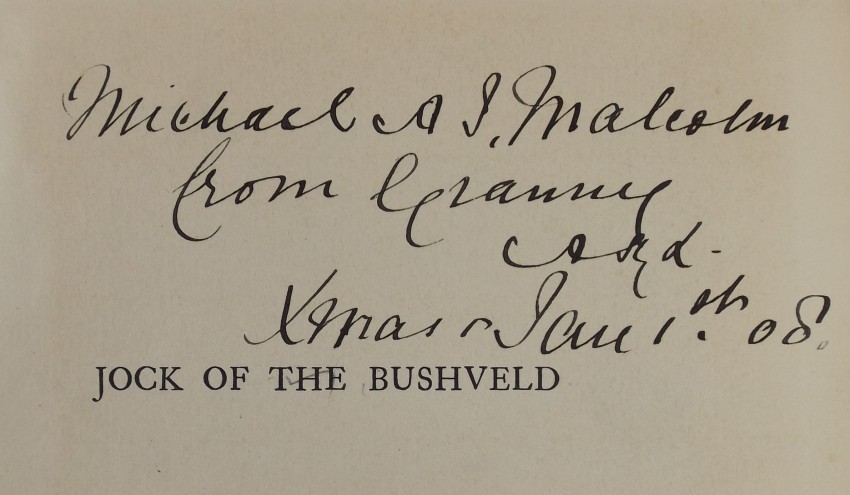 Michael A J. Malcolm
from Granny
Xmas & Jan 1.th 08.
JOCK OF THE BUSHVELD